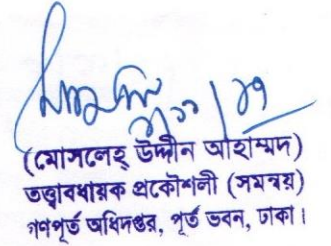 (মোসলেহ্ উদ্দীন আহাম্মদ)
তত্ত্বাবধায়ক প্রকৌশলী (সমন্বয়)
গণপূর্ত অধিদপ্তর, পূর্ত ভবন, ঢাকা।